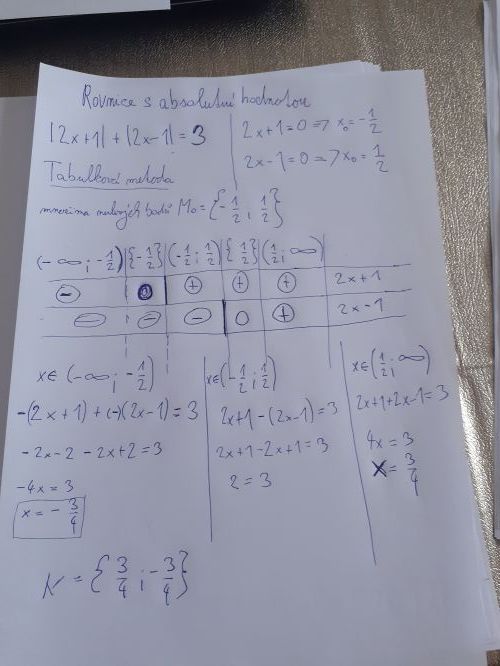 Rovnice s absolutní hodnotou
|2x+1| + |2x-1| = 3
2x+1=0 => x₀ = -1/2
2x-1=0 => x₀ = 1/2
Tabulková metoda
množina nulových bodů M₀ = {-1/2 ; 1/2}
(-∞ ; -1/2) {-1/2} (-1/2 ; 1/2) {1/2} (1/2 ; ∞)
- 0 + + + 2x+1
- - - 0 + 2x-1
x∈ (-∞ ; -1/2)
-(2x+1) + (-)(2x-1) = 3
-2x-2 -2x+2 = 3
-4x = 3
x = -3/4
x∈ (-1/2 ; 1/2)
2x+1 - (2x-1) = 3
2x+1-2x+1 = 3
2 = 3
x∈ (1/2 ; ∞)
2x+1+2x-1 = 3
4x = 3
x = 3/4
K = {3/4 ; -3/4}